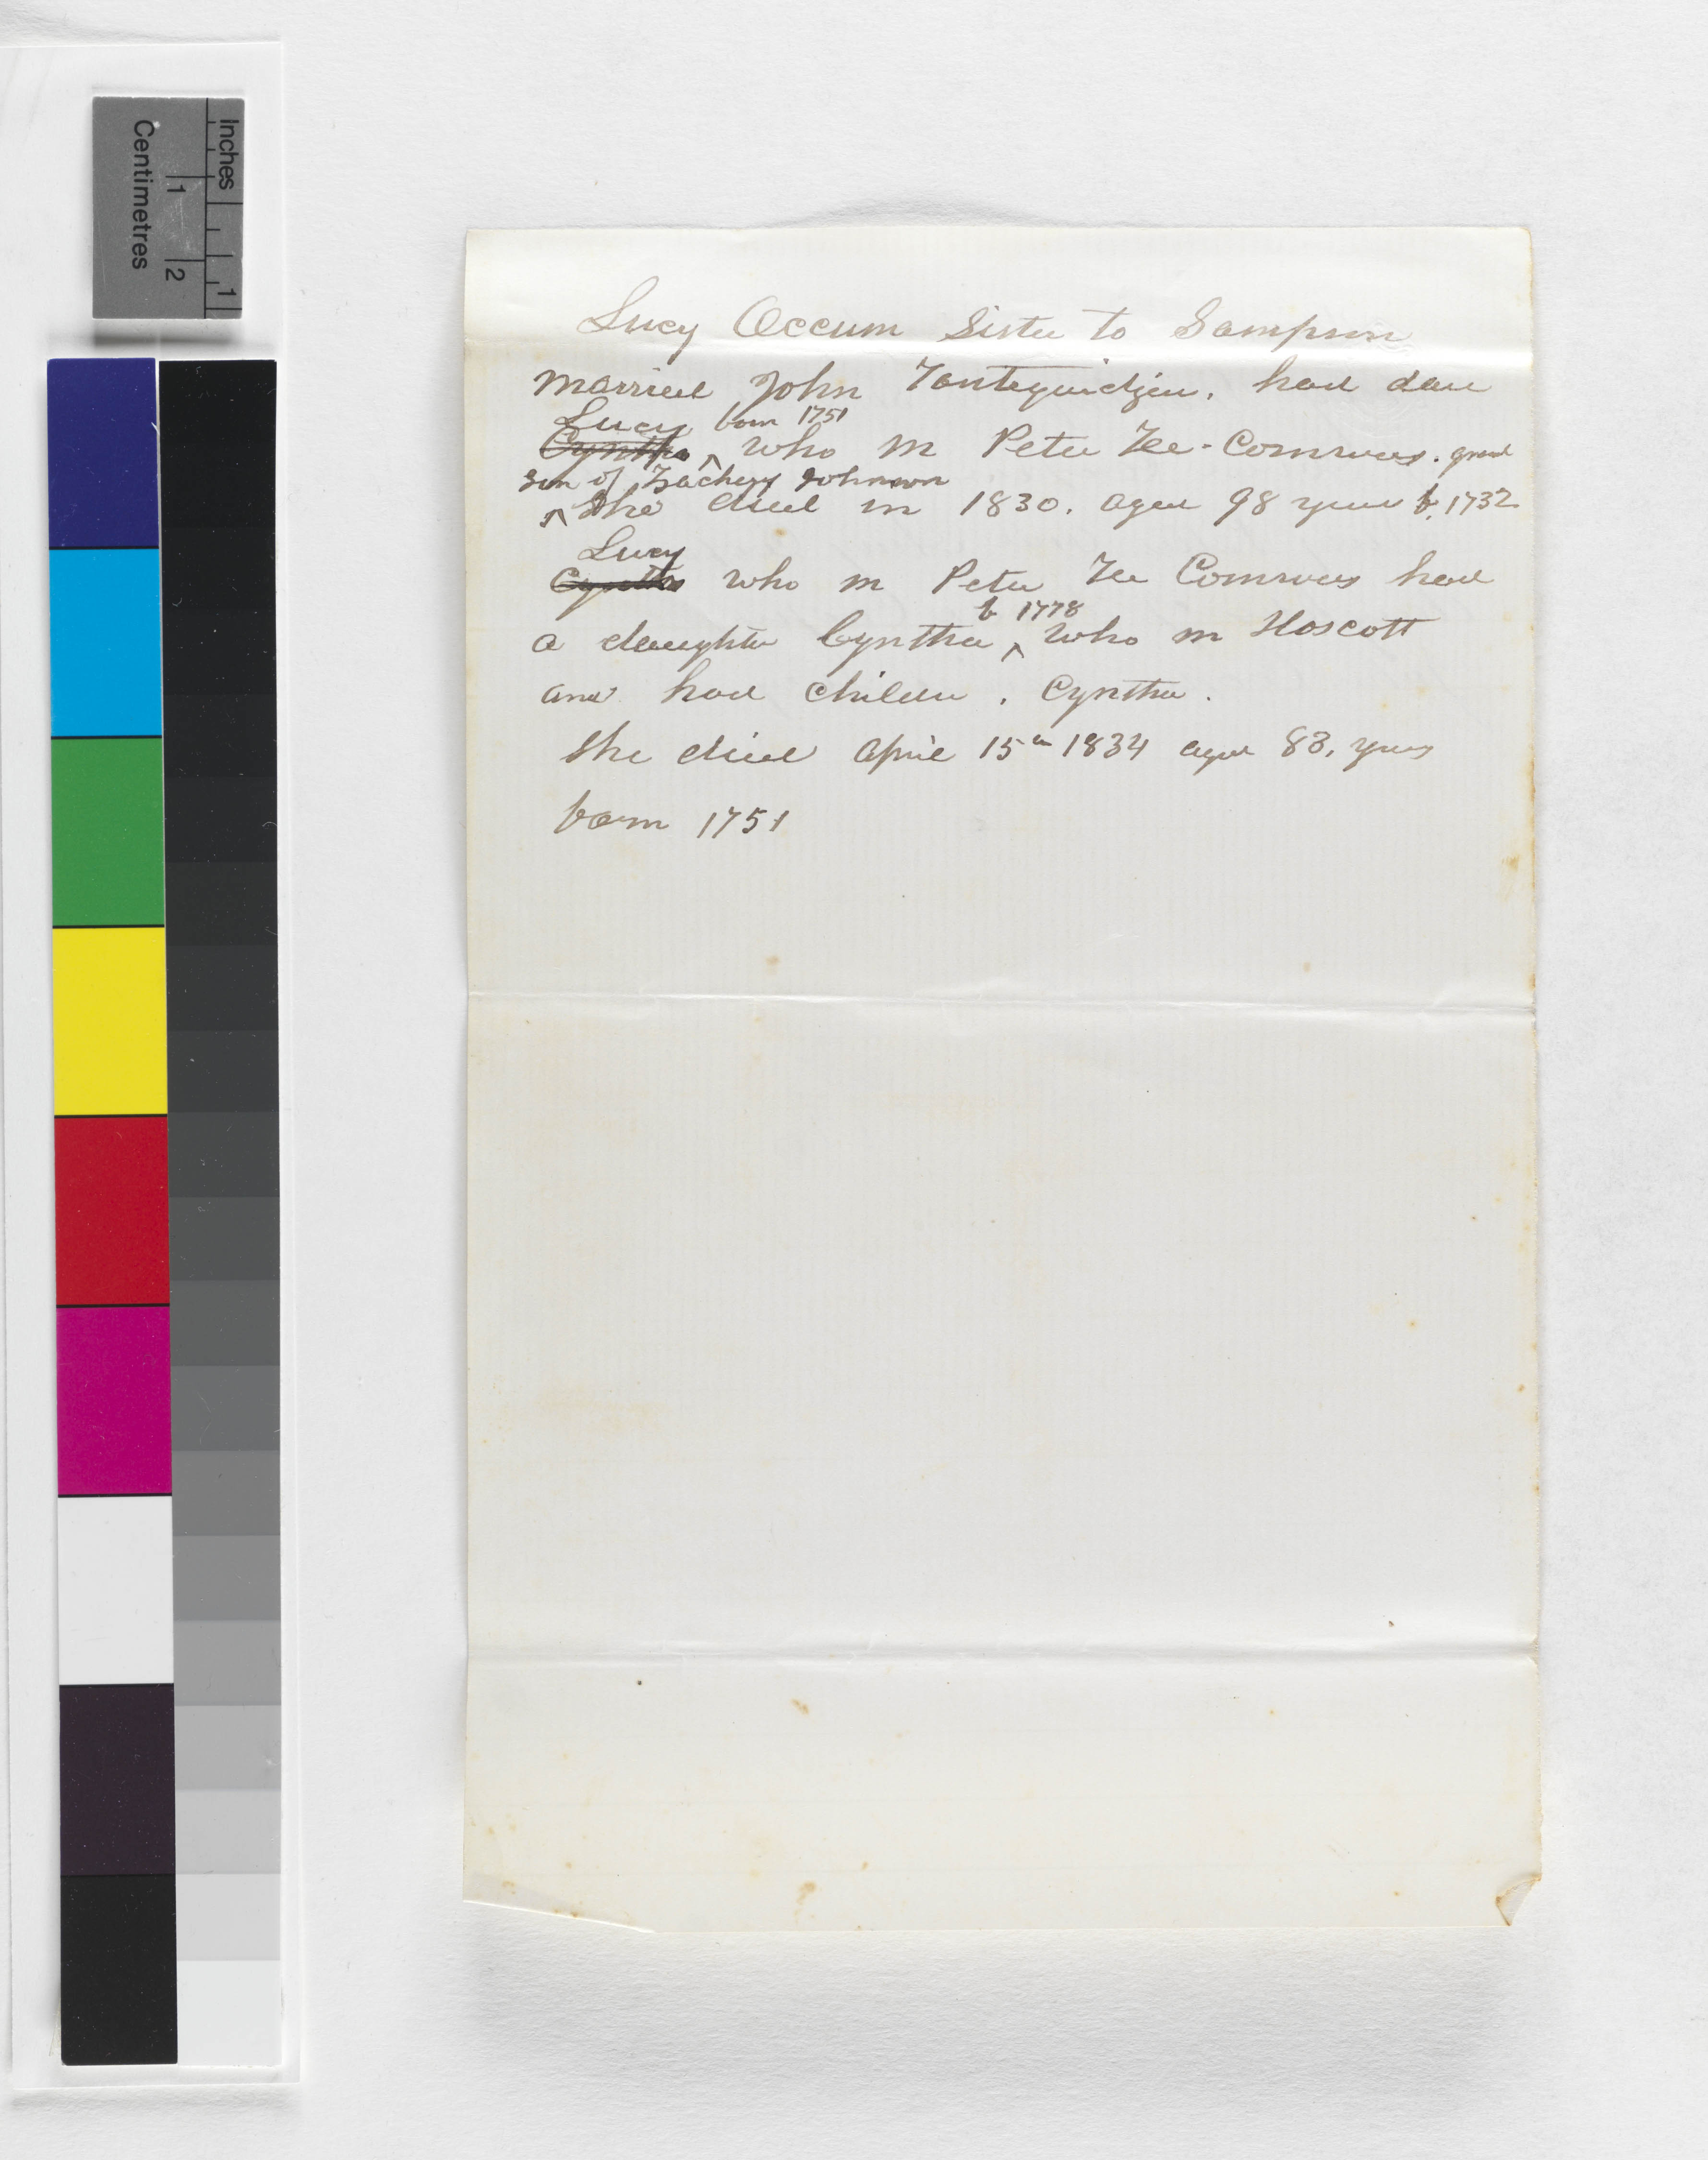 Inches
1
Centimetres
1 2
Lucy Occum Sister to Sampson
Married John Tantequidgen, had dau
Lucy born 1751
Cyntha ^ who m Peter Tee-Comwas. grand
son of Zachery Johnson
^ She died in 1830. aged 98 years b. 1732
Lucy
Cyntha who m Peter Tee Comwas had
b 1778
a daughter Cyntha ^ who m Hoscott
and had children . Cyntha .
She died April 15th 1834 aged 83, years
born 1751